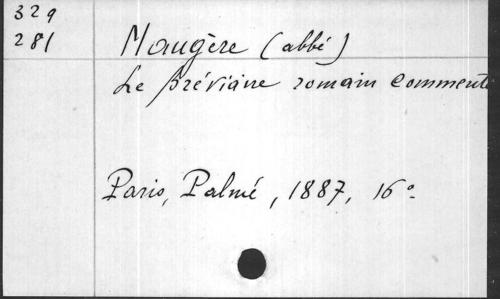 329
281
Maugère (abbé)
Le Bréviaire romain commenté
Paris, Palmé, 1887, 16°.